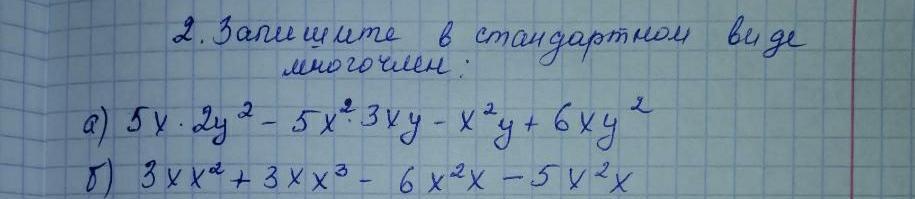 2. Запишите в стандартном виде
многочлен:
а) 5x · 2y² - 5x² · 3xy - x²y + 6xy²
б) 3xx² + 3xx³ - 6x²x - 5x²x